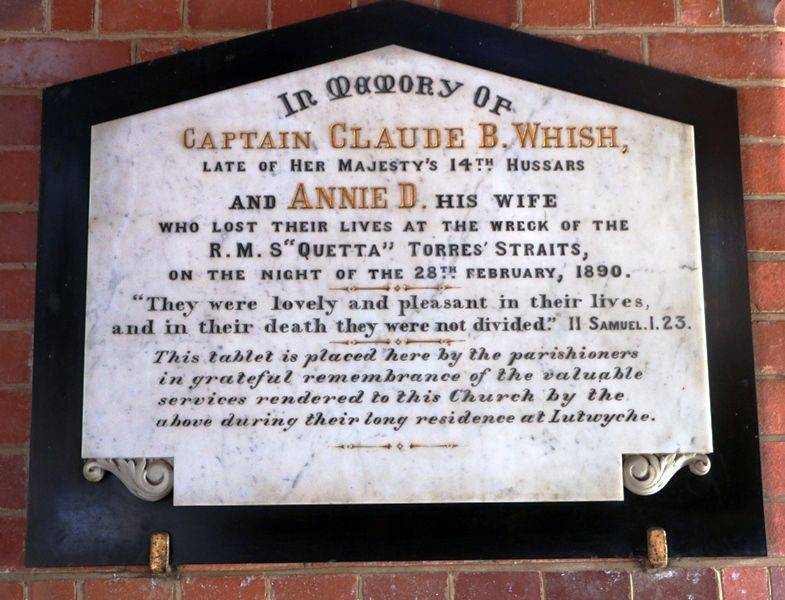 In Memory Of
Captain Claude B. Whish,
late of Her Majesty's 14th Hussars
and Annie D. his wife
who lost their lives at the wreck of the
R.M.S "Quetta" Torres' Straits,
on the night of the 28th February, 1890.
"They were lovely and pleasant in their lives,
and in their death they were not divided." II Samuel. 1. 23.
This tablet is placed here by the parishioners
in grateful remembrance of the valuable
services rendered to this Church by the
above during their long residence at Lutwyche.